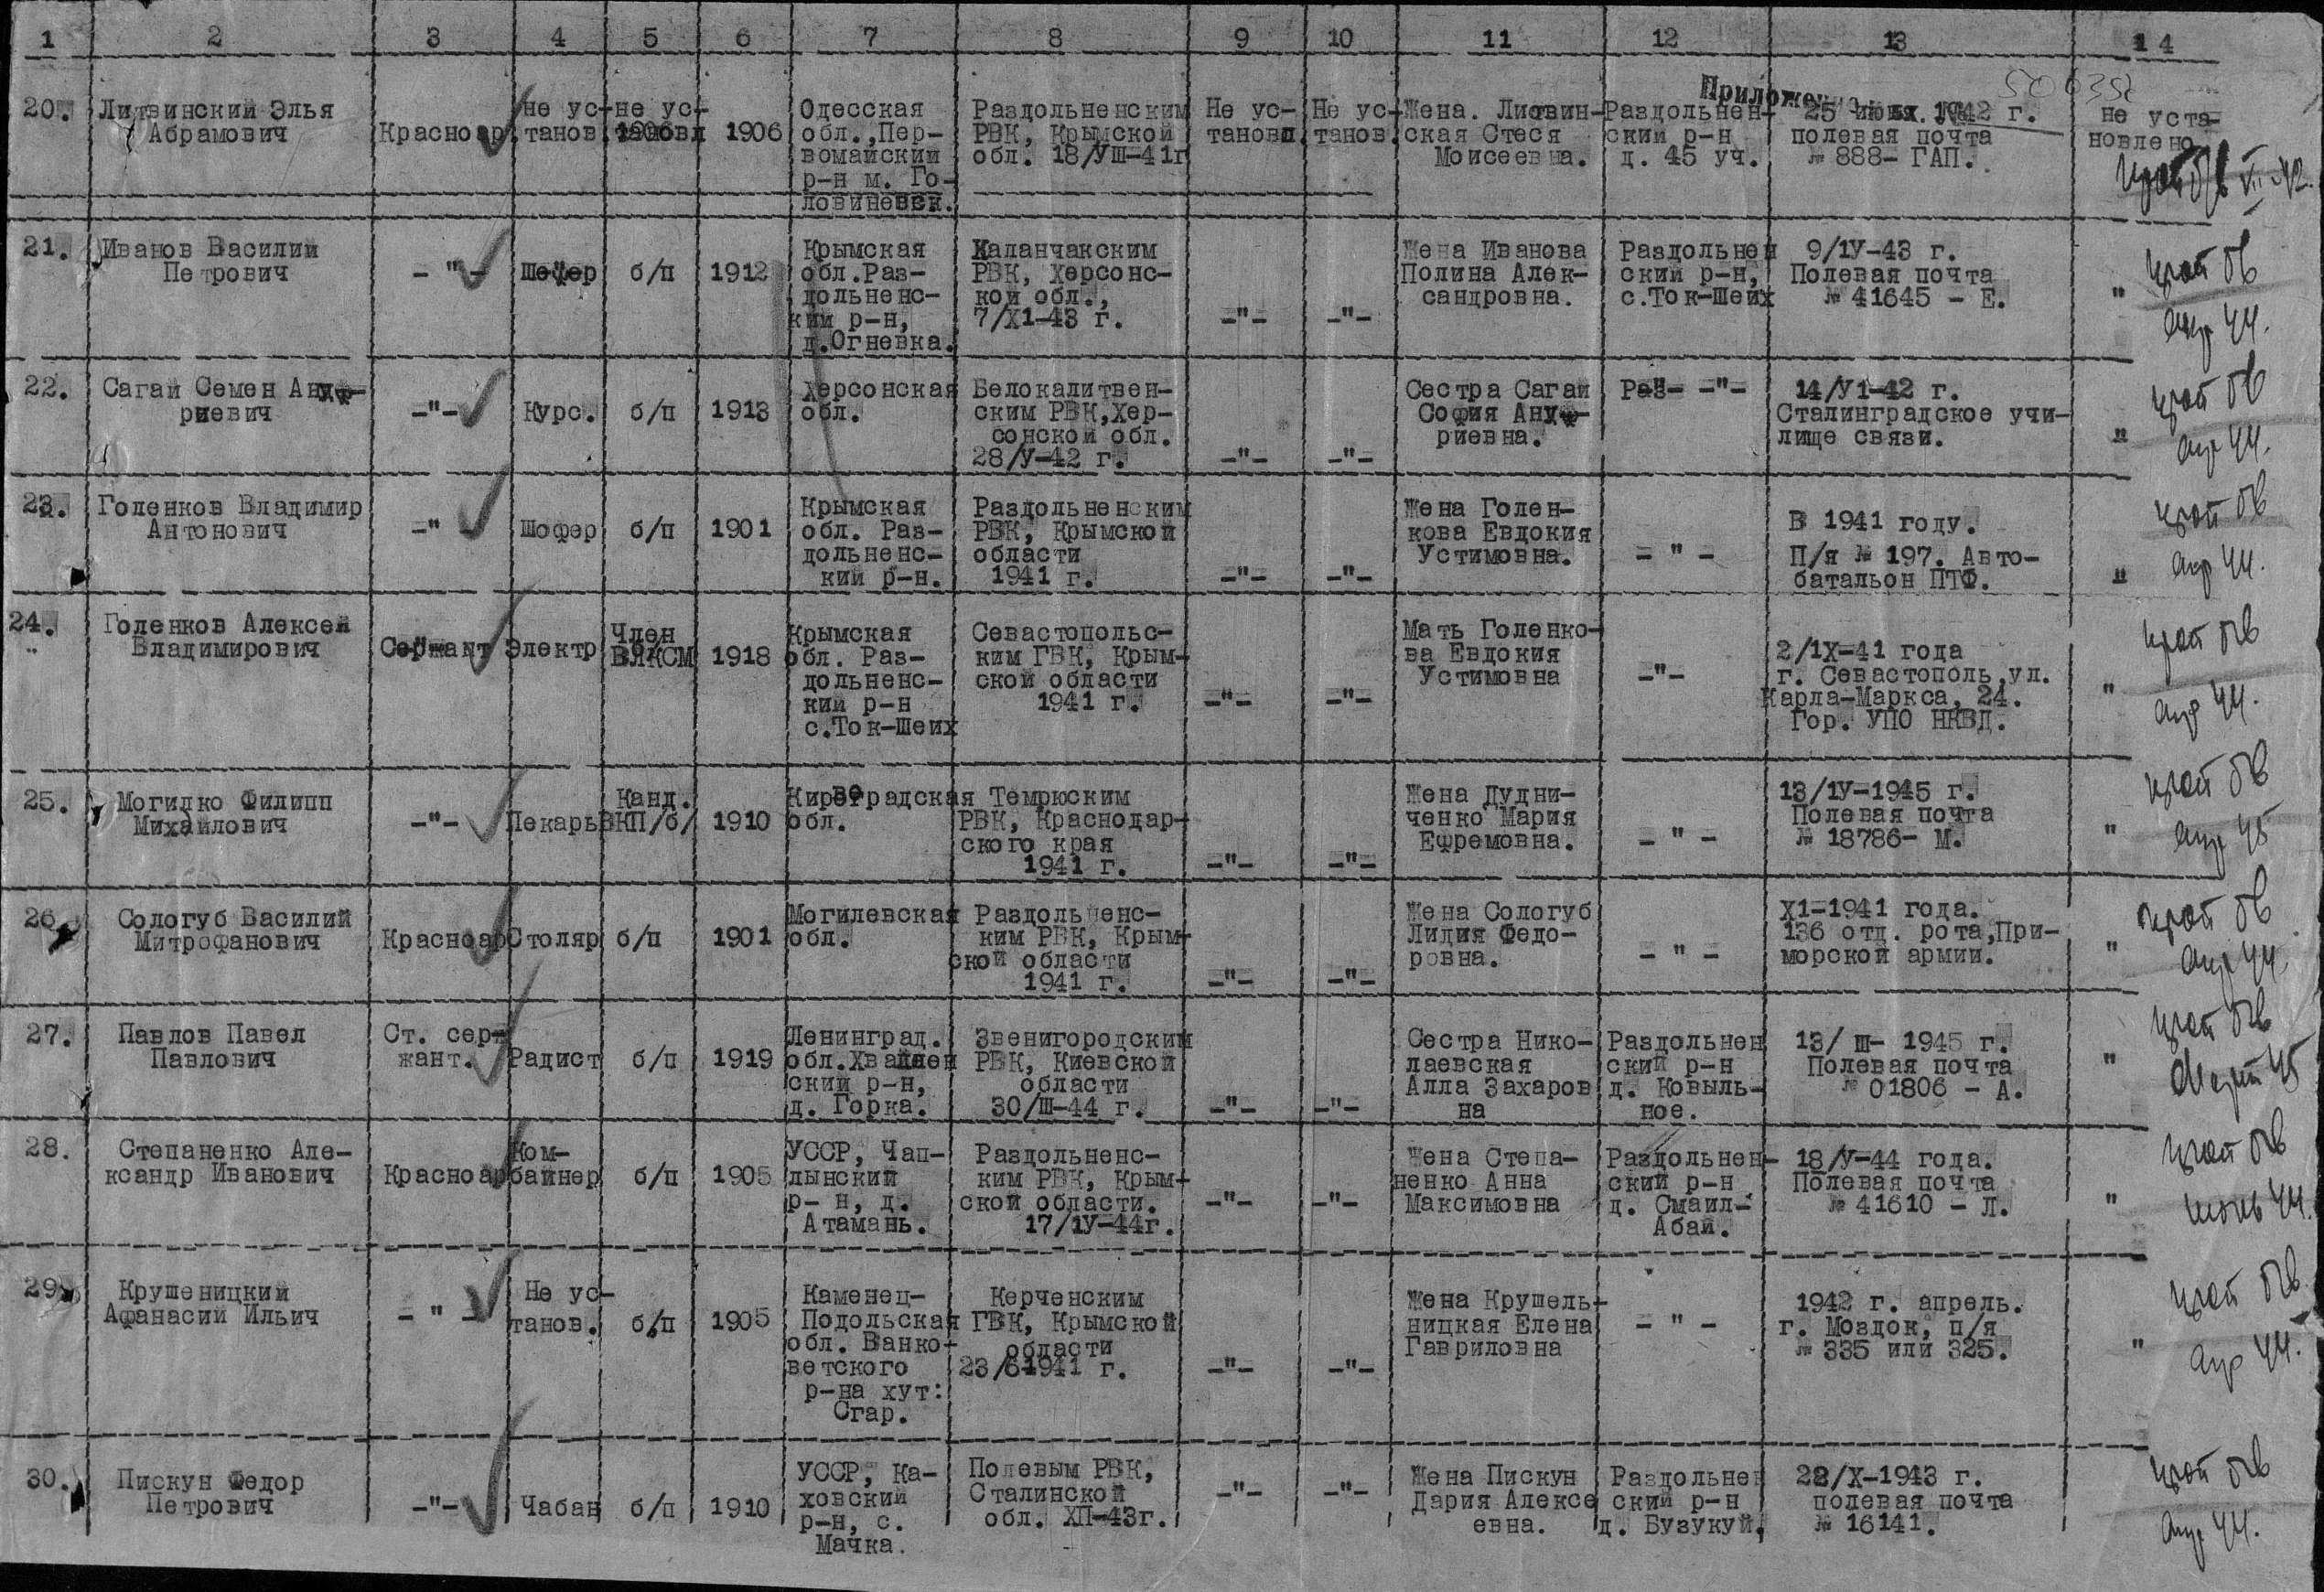 1 2 3 4 5 6 7 8 9 10 11 12 13 14
Приложен
20. Литвинский Элья Абрамович Красноар. не ус-танов. не ус-тановл 1906 Одесская обл.,Пер-вомайский р-н м. Го-ловиневск. Раздольненским РВК, Крымской обл. 18/УШ-41г Не ус-тановл. Не ус-танов. Жена. Литвин-ская Стеся Моисеевна. Раздольнен-ский р-н д. 45 уч. 25 июня 1942 г. полевая почта № 888- ГАП. не уста-новлено
21. Иванов Василий Петрович -"- Шофер б/п 1912 Крымская обл.Раз-дольненс-ким р-н, д.Огневка. Каланчакским РВК, Херсонс-кой обл., 7/Х1-43 г. -"- -"- Жена Иванова Полина Алек-сандровна. Раздольнен ский р-н, с.Ток-Шеих 9/1У-43 г. Полевая почта № 41645 - Е. " проп б/в апр 44.
22. Сагай Семен Ануф-риевич -"- Курс. б/п 1913 Херсонская обл. Белокалитвен-ским РВК,Хер-сонской обл. 28/У-42 г. -"- -"- Сестра Сагай София Ануф-риевна. -"- 14/У1-42 г. Сталинградское учи-лище связи. " проп б/в апр 44.
23. Голенков Владимир Антонович -" Шофер б/п 1901 Крымская обл. Раз-дольненс-кий р-н. Раздольненским РВК, Крымской области 1941 г. -"- -"- Жена Голен-кова Евдокия Устимовна. - " - В 1941 году. П/я № 197. Авто-батальон ПТФ. " проп б/в апр 44.
24. Голенков Алексей Владимирович Сержант Электр Член ВЛКСМ 1918 Крымская обл. Раз-дольненс-кий р-н с.Ток-Шеих Севастопольс-ким ГВК, Крым-ской области 1941 г. -"- -"- Мать Голенко-ва Евдокия Устимовна -"- 2/1Х-41 года г. Севастополь,ул. Карла-Маркса, 24. Гор. УПО НКВД. " проп б/в апр 44.
25. Могилко Филипп Михайлович -"- Пекарь Канд. ВКП/б/ 1910 Кировоградская обл. Темрюским РВК, Краснодар-ского края 1941 г. -"- -"- Жена Дудни-ченко Мария Ефремовна. - " - 13/1У-1945 г. Полевая почта № 18786- М. " проп б/в апр 45
26. Сологуб Василий Митрофанович Красноар Столяр б/п 1901 Могилевская обл. Раздольненс-ким РВК, Крым-ской области 1941 г. -"- -"- Жена Сологуб Лидия Федо-ровна. - " - Х1-1941 года. 136 отд. рота,При-морской армии. " проп б/в апр 44
27. Павлов Павел Павлович Ст. сер-жант. Радист б/п 1919 Ленинград. обл.Хвайнен ский р-н, д. Горка. Звенигородским РВК, Киевской области 30/Ш-44 г. -"- -"- Сестра Нико-лаевская Алла Захаров на Раздольнен ский р-н д. Ковыль-ное. 13/ Ш- 1945 г. Полевая почта № 01806 - А. " проп б/в Март 45
28. Степаненко Але-ксандр Иванович Красноар Ком-байнер б/п 1905 УССР, Чап-лынский р- н, д. Атамань. Раздольненс-ким РВК, Крым-ской области. 17/1У-44г. -"- -"- Жена Степа-ненко Анна Максимовна Раздольнен-ский р-н д. Смаил-Абай. 18/У-44 года. Полевая почта № 41610 - Л. " проп б/в июнь 44.
29. Крушеницкий Афанасий Ильич - " - Не ус-танов. б/п 1905 Каменец-Подольская обл. Ванко-ветского р-на хут: Сгар. Керченским ГВК, Крымской области 23/6-1941 г. -"- -"- Жена Крушель-ницкая Елена Гавриловна - " - 1942 г. апрель. г. Моздок, п/я № 335 или 325. " проп б/в апр 44.
30. Пискун Федор Петрович -"- Чабан б/п 1910 УССР, Ка-ховский р-н, с. Мачка. Полевым РВК, Сталинской обл. ХП-43г. -"- -"- Жена Пискун Дария Алексе евна. Раздольнен ский р-н д. Бузукуй. 28/Х-1943 г. полевая почта № 16141. проп б/в апр 44.